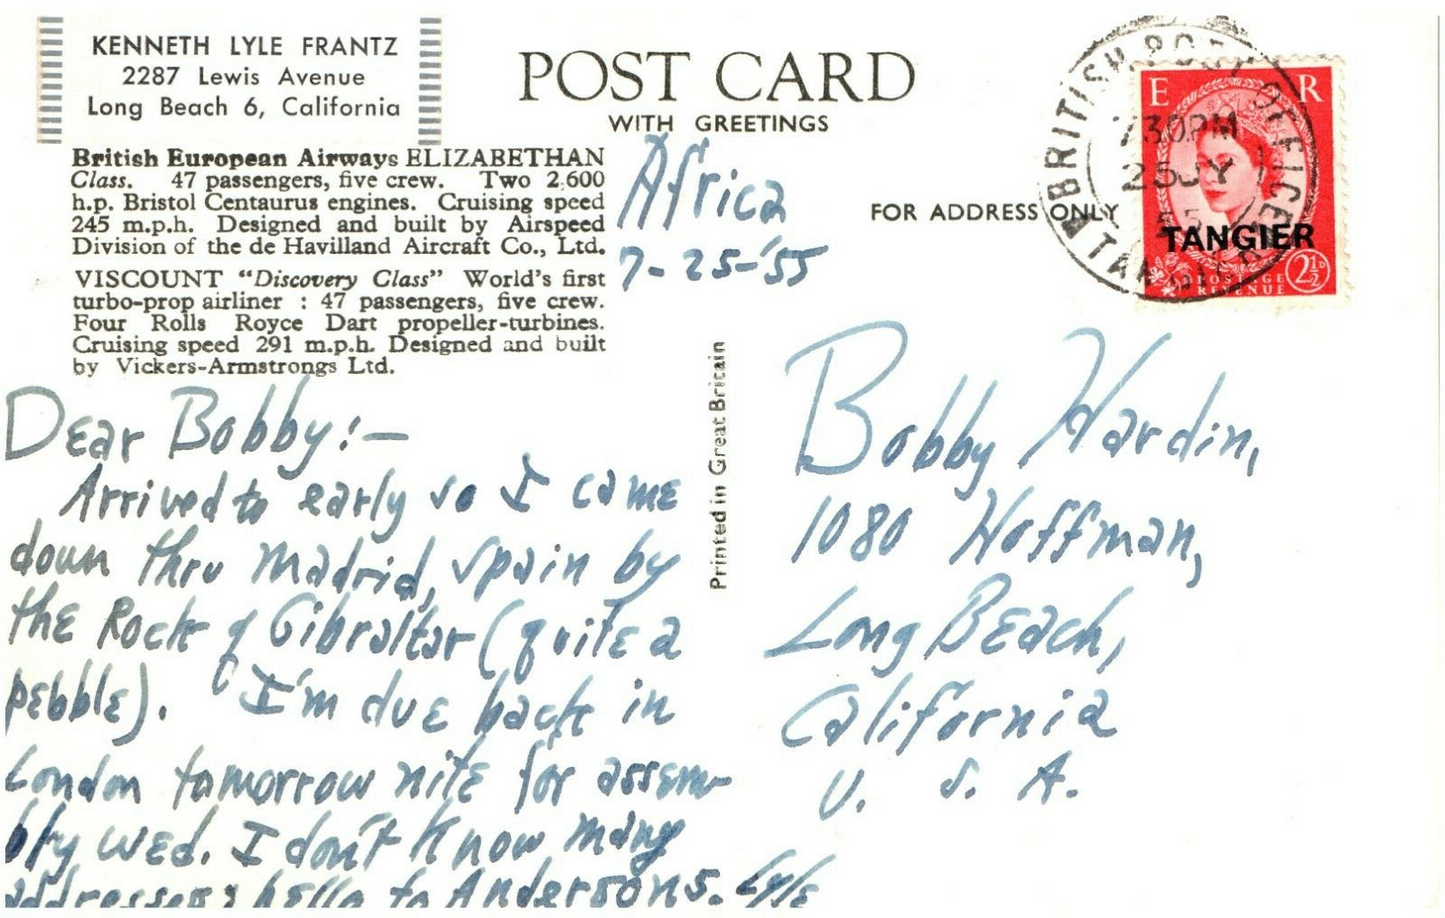 KENNETH LYLE FRANTZ
2287 Lewis Avenue
Long Beach 6, California
POST CARD
WITH GREETINGS
British European Airways ELIZABETHAN
Class. 47 passengers, five crew. Two 2,600
h.p. Bristol Centaurus engines. Cruising speed
245 m.p.h. Designed and built by Airspeed
Division of the de Havilland Aircraft Co., Ltd.
VISCOUNT "Discovery Class" World's first
turbo-prop airliner : 47 passengers, five crew.
Four Rolls Royce Dart propeller-turbines.
Cruising speed 291 m.p.h. Designed and built
by Vickers-Armstrongs Ltd.
Africa
7-25-'55
Dear Bobby:—
Arrived to early so I came
down thru Madrid, Spain by
the Rock of Gibraltar (quite a
pebble). I'm due back in
London tomorrow nite for assem-
bly wed. I don't know many
addresses; hello to Andersons. Lyle
Printed in Great Britain
FOR ADDRESS ONLY
BRITISH POST OFFICE
TANGIER
7 30PM
25 JY
55
E R
TANGIER
POSTAGE
REVENUE
2½D
Bobby Hardin,
1080 Hoffman,
Long Beach,
California
U. S. A.